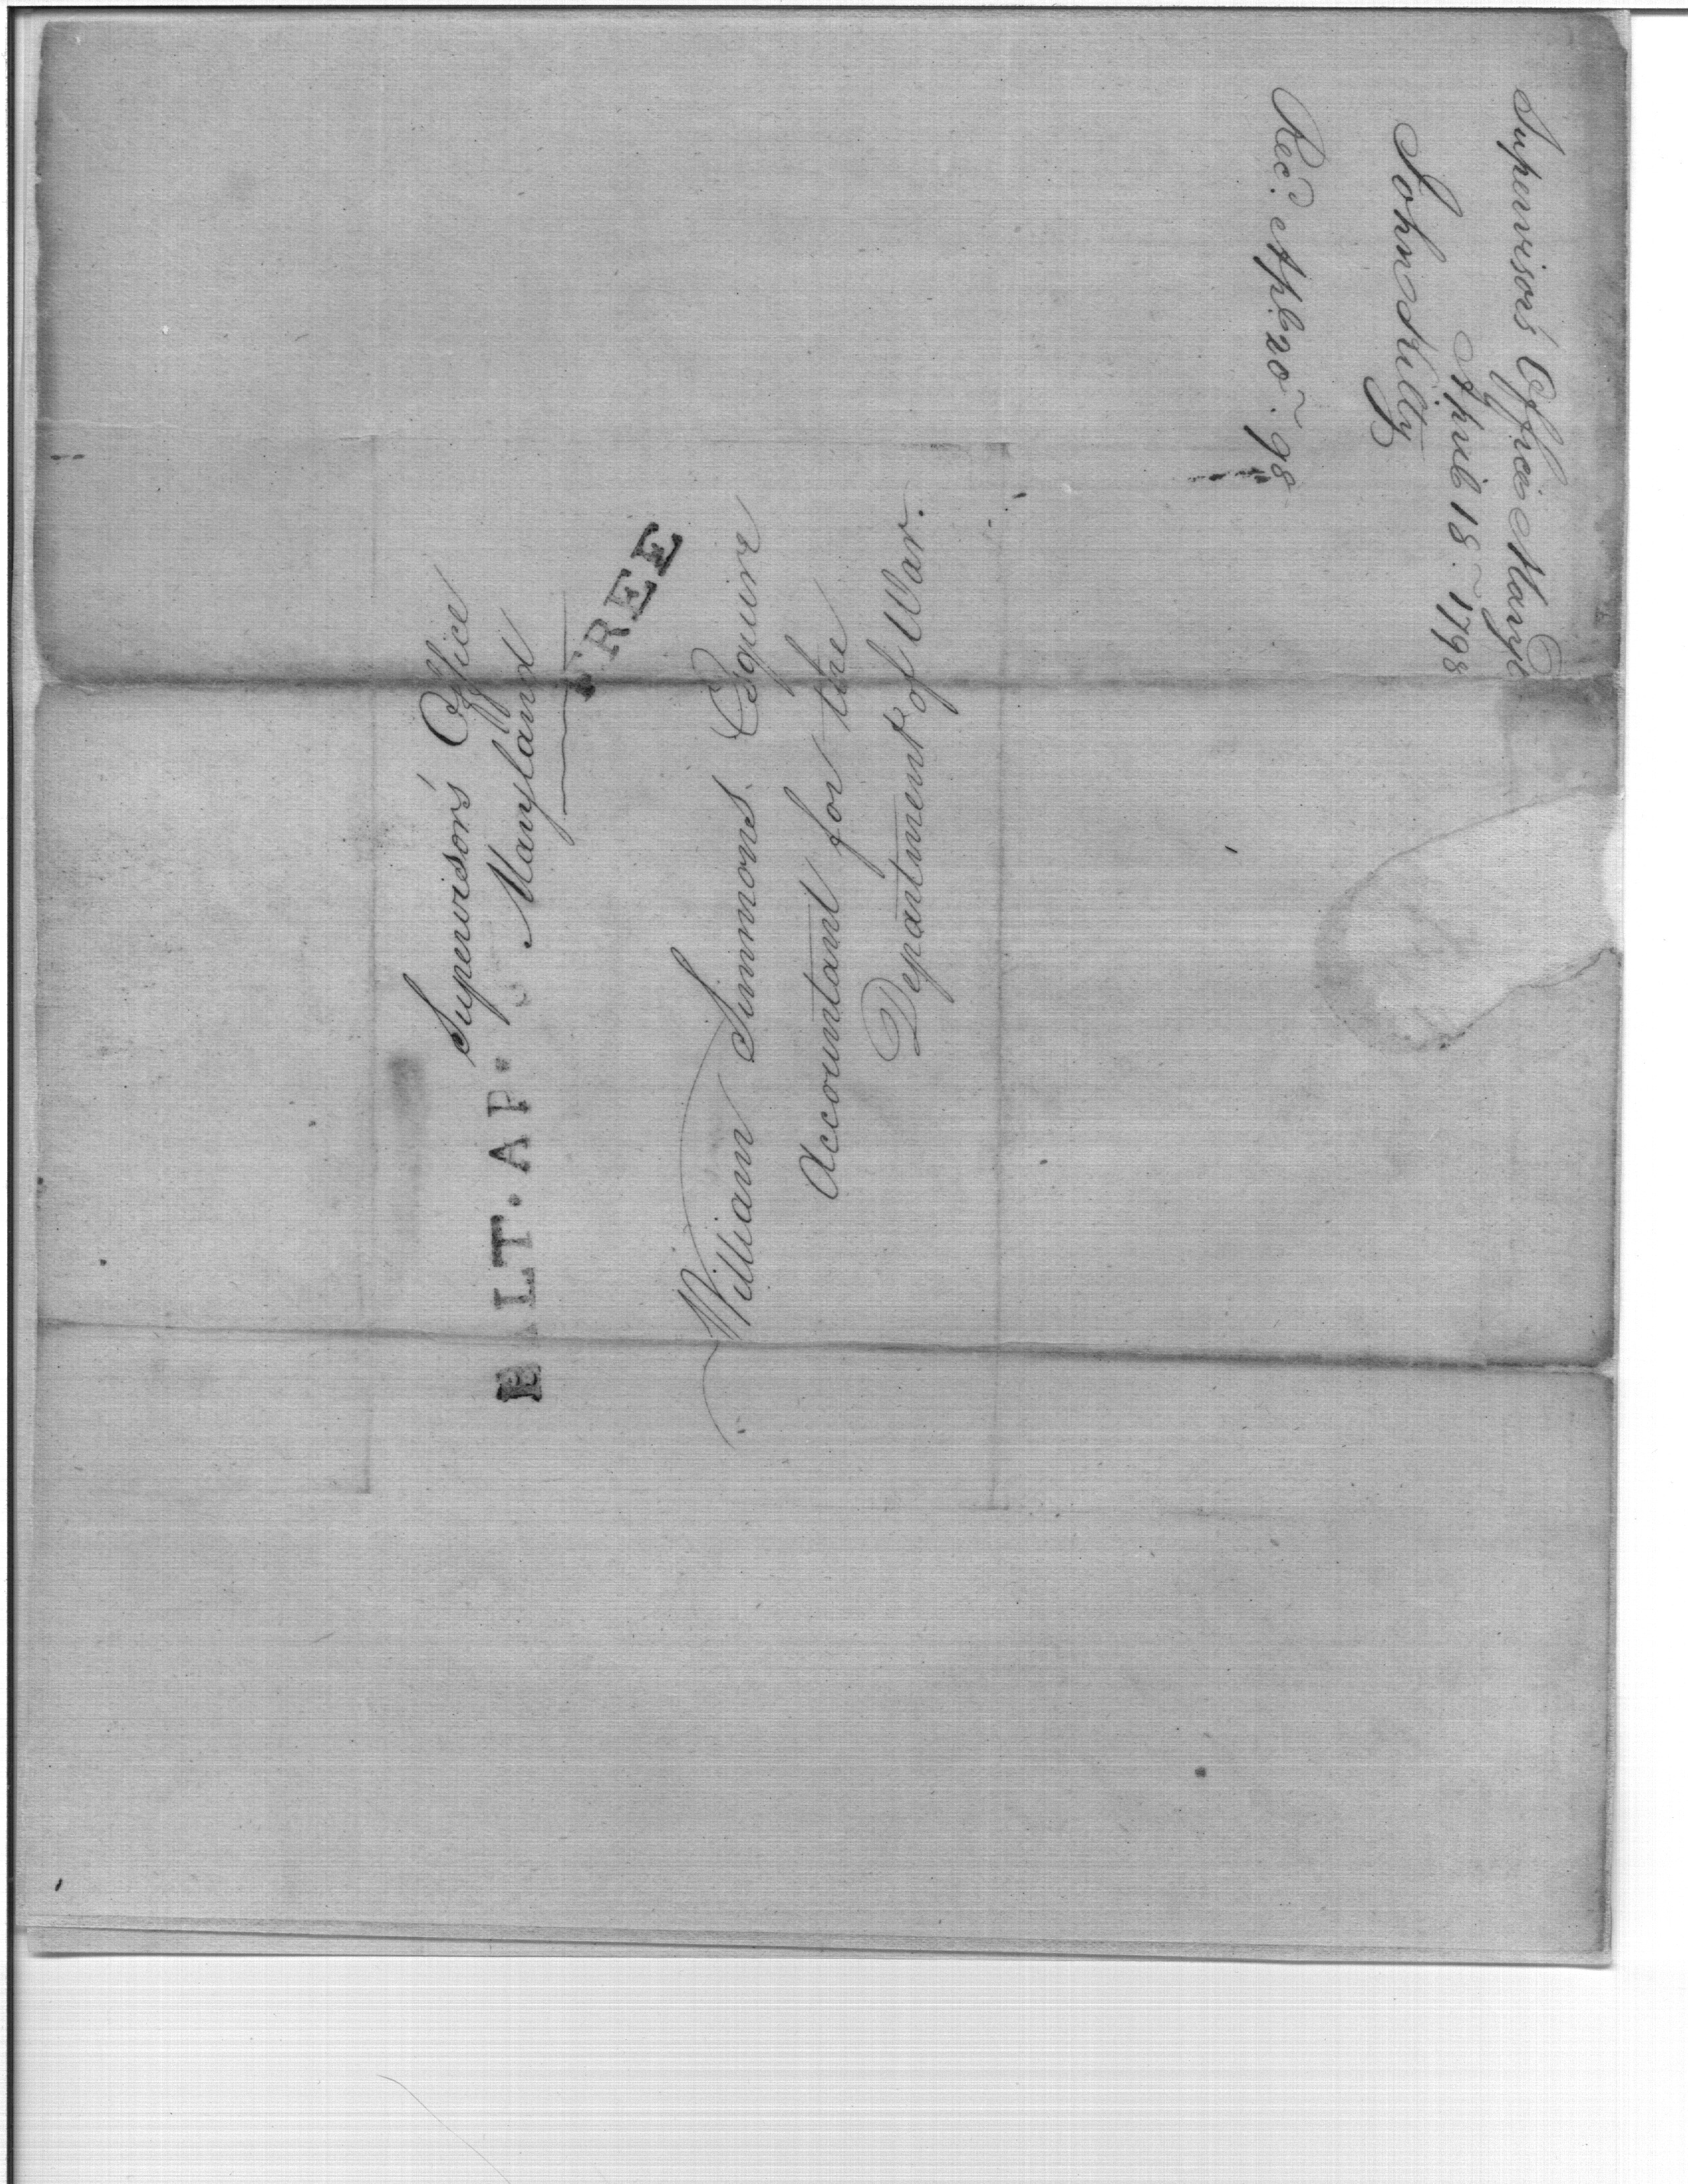 Supervisors Office Maryld
April 18. 1798
John Kilty
Recd. Apl. 20. 98
Supervisors' Office
Maryland
FREE
BALT. AP.
William Simmons Esquire
Accountant for the
Department of War.